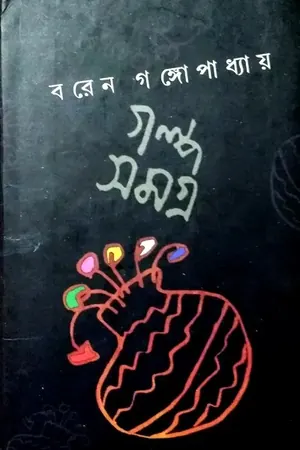 বরেন গঙ্গোপাধ্যায়
গল্প
সমগ্র